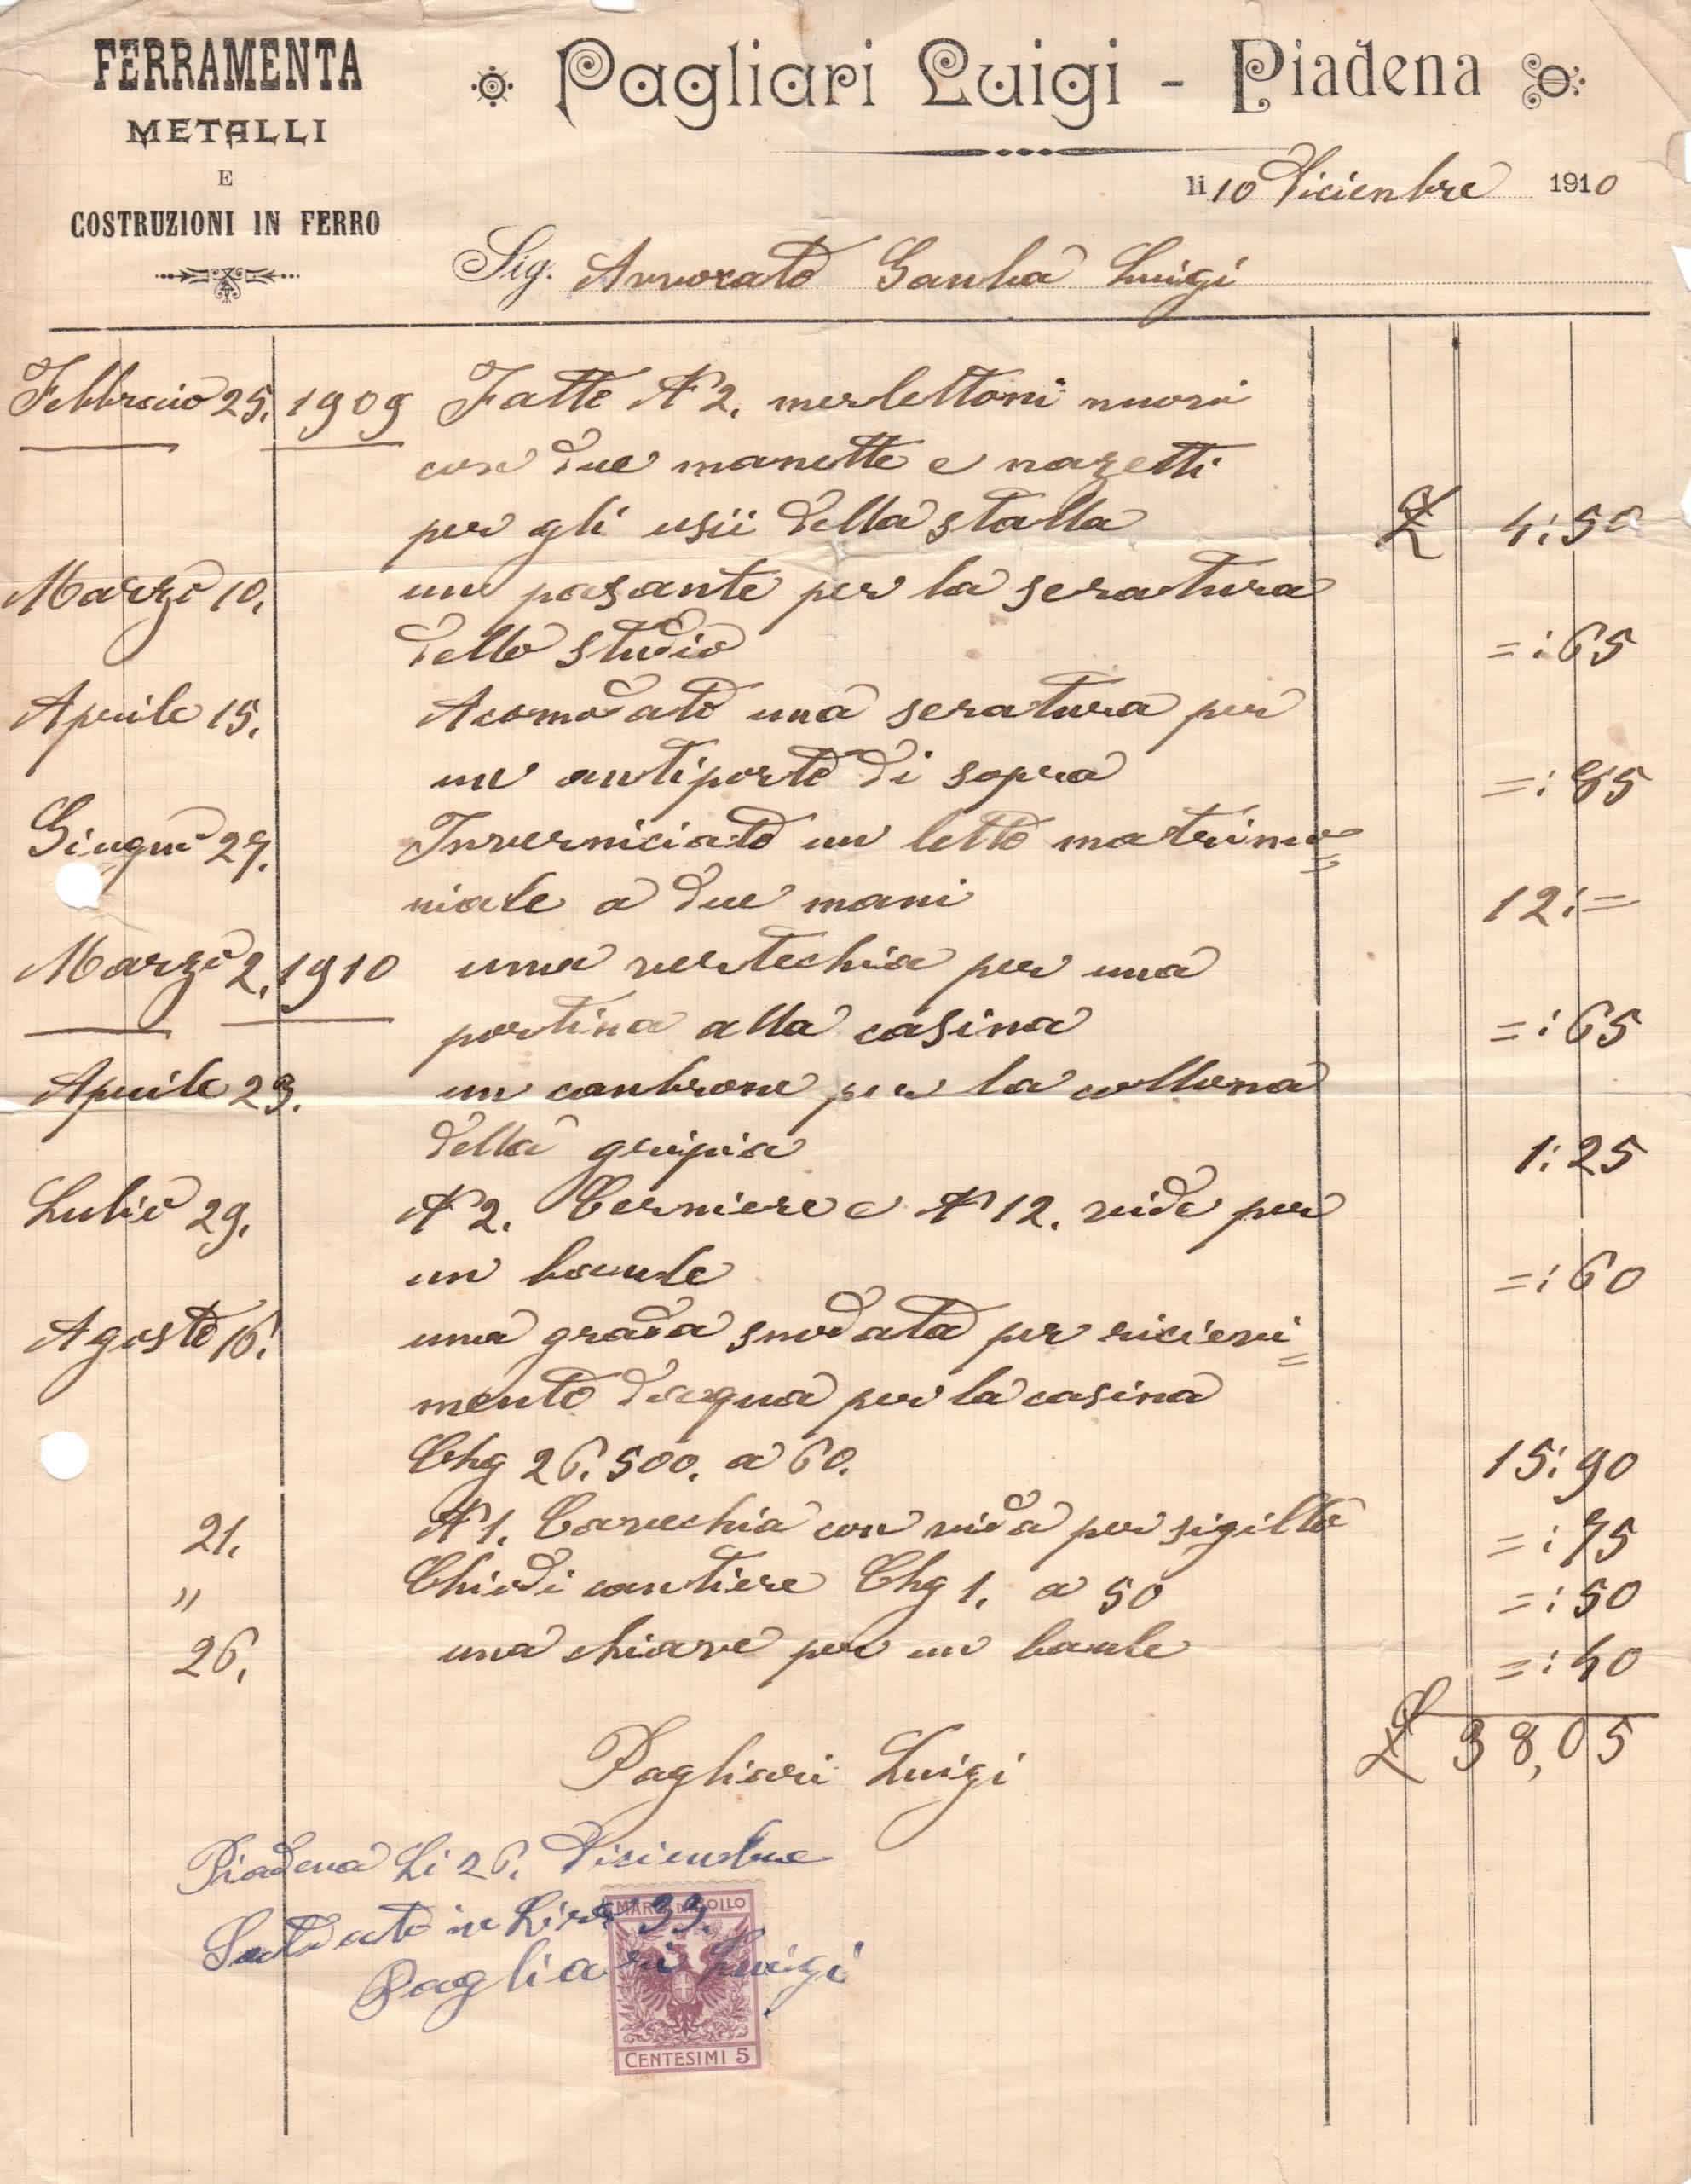 FERRAMENTA
METALLI
E
COSTRUZIONI IN FERRO
Pagliari Luigi - Piadena
li 10 Diciembre 1910
Sig. Avvocato Ganba Luigi
Febbraio 25. 1909 Fatte N° 2. merlettoni nuovi
con due manette e nazetti
per gli usii della stalla £ 4:50
Marzo 10. un pasante per la seratura
dello studio =:65
Aprile 15. Acomodato una seratura per
un antiporto di sopra =:85
Giugno 27. Inverniciato un letto matrimo=
niale a due mani 12:=
Marzo 2. 1910 una vertechia per una
portina alla casina =:65
Aprile 23. un canbrone per la collona
della gripia 1:25
Lulio 29. N° 2. Cerniere e N° 12. vide per
un baule =:60
Agosto 16. una grada snodata per ricievi=
mento d'aqua per la casina
Chg 26.500. a 60. 15:90
21. N° 1. Cavechia con vida per sigillo =:75
" Chiodi cantiere Chg 1. a 50 =:50
26. una chiave per un baule =:40
£ 38,05
Pagliari Luigi
Piadena Li 26. Disienbre
Saldato in Lire 33.
Pagliari Luigi
MARCA DA BOLLO
CENTESIMI 5